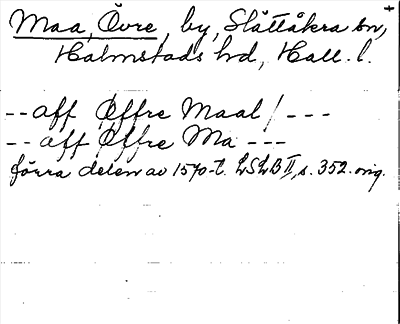 Maa, Övre, by, Slättåkra sn,
Halmstads hd, Hall. l.
-- aff Öffre Maal / ---
-- aff Öffre Ma ---
förra delen av 1570-t. LSLB II, s. 352. orig.